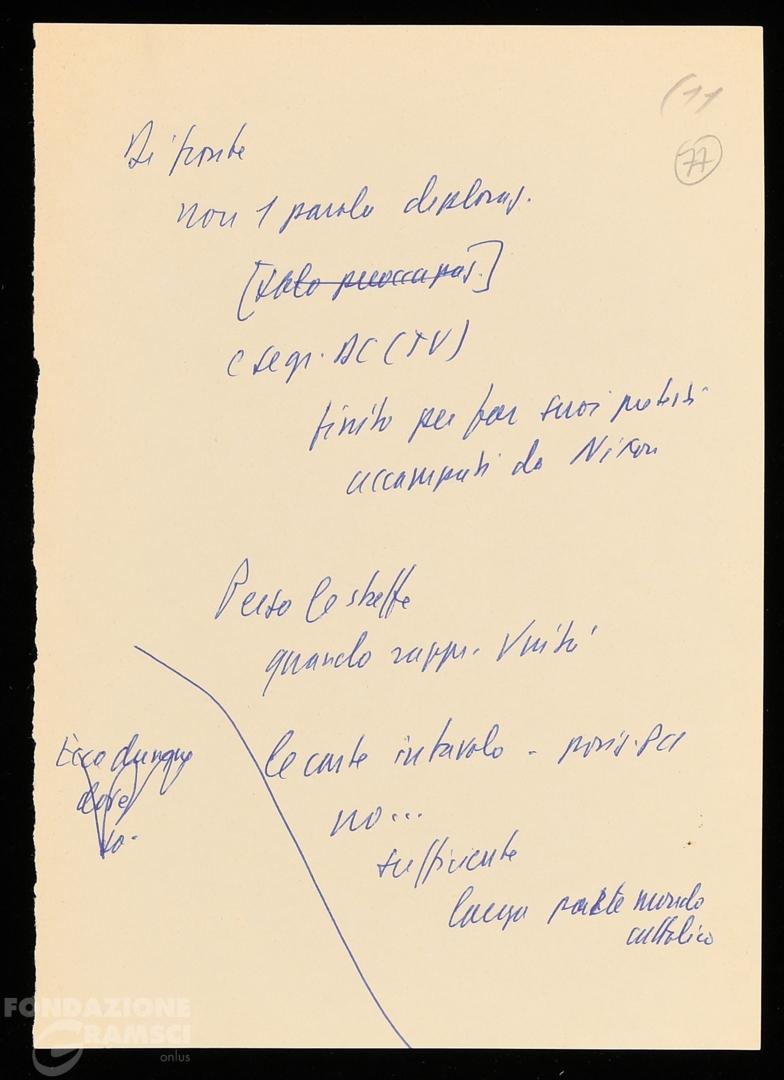 (11
77
Di fronte
non 1 parola deploraz.
[solo preoccupaz.]
e segr. DC (TV)
finito per far suoi pretesti
accampati da Nixon
Perso le staffe
quando rappr. Unità
le carte in tavola - posiz. PCI
no...
sufficiente
larga parte mondo
cattolico
Ecco dunque
dove
so-
FONDAZIONE
GRAMSCI
onlus